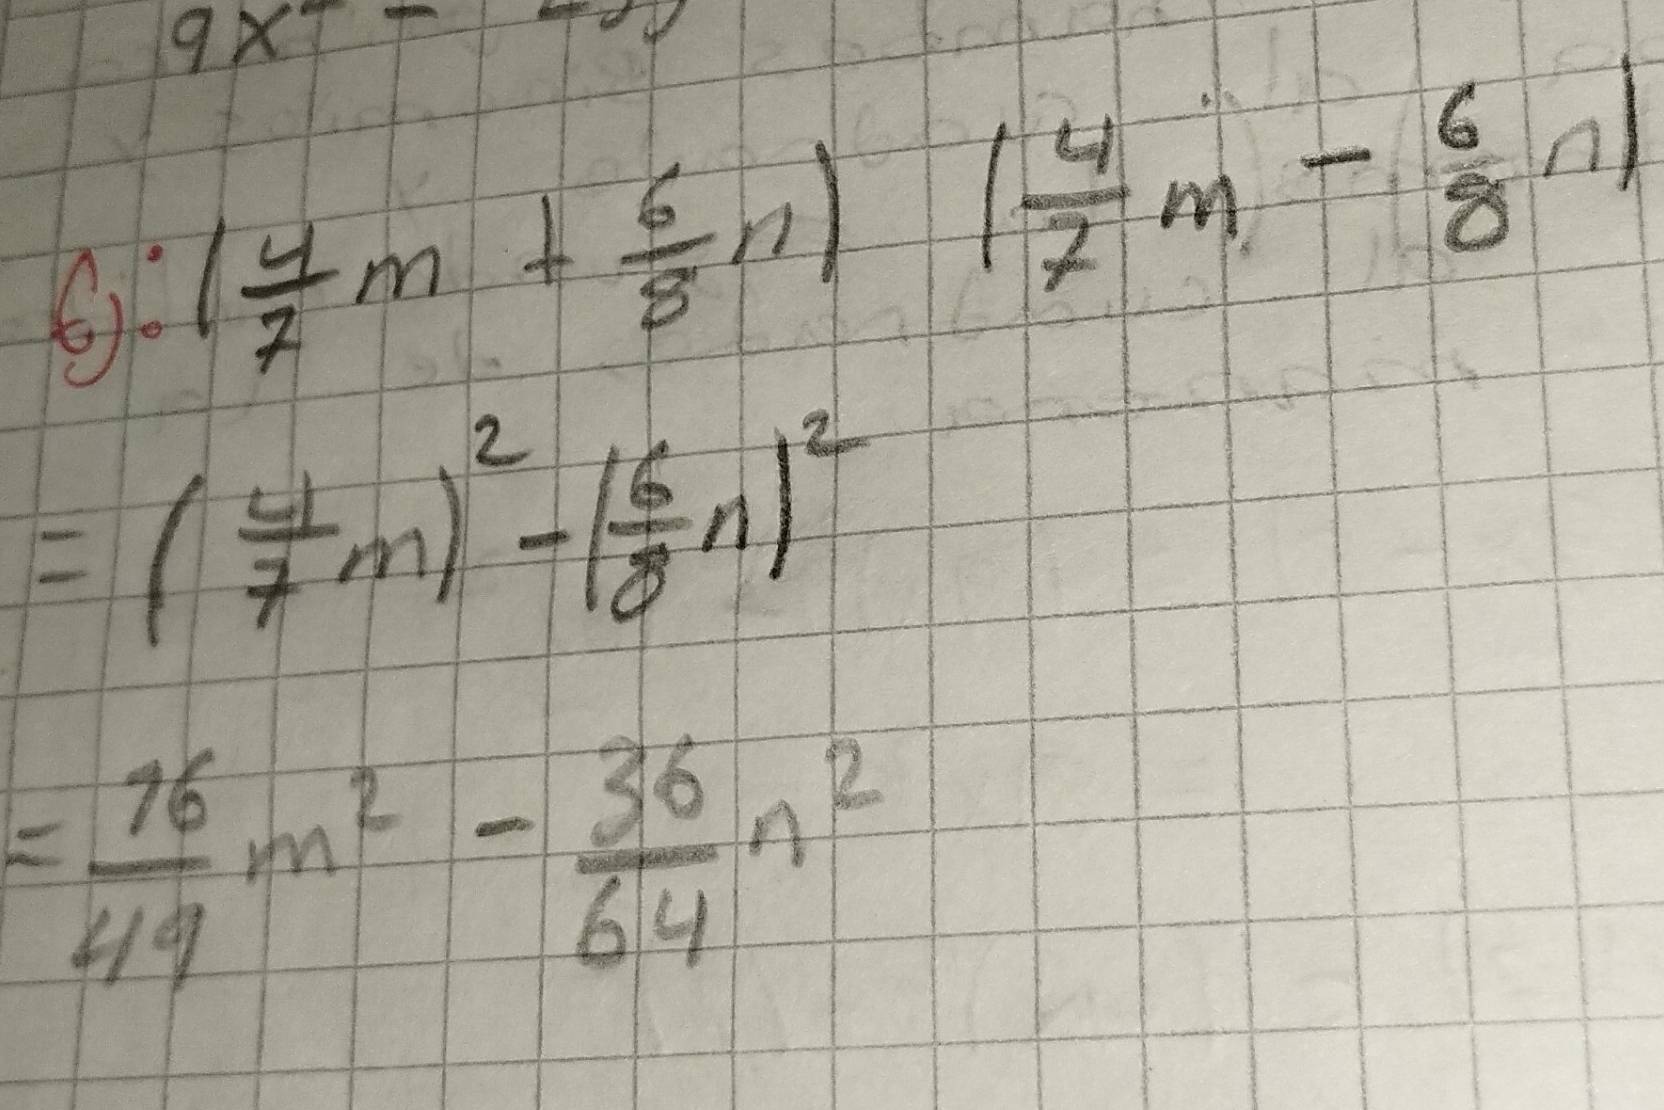 9x² -
6): (4/7 m + 6/8 n) (4/7 m - 6/8 n)
= (4/7 m)² - (6/8 n)²
= 16/49 m² - 36/64 n²